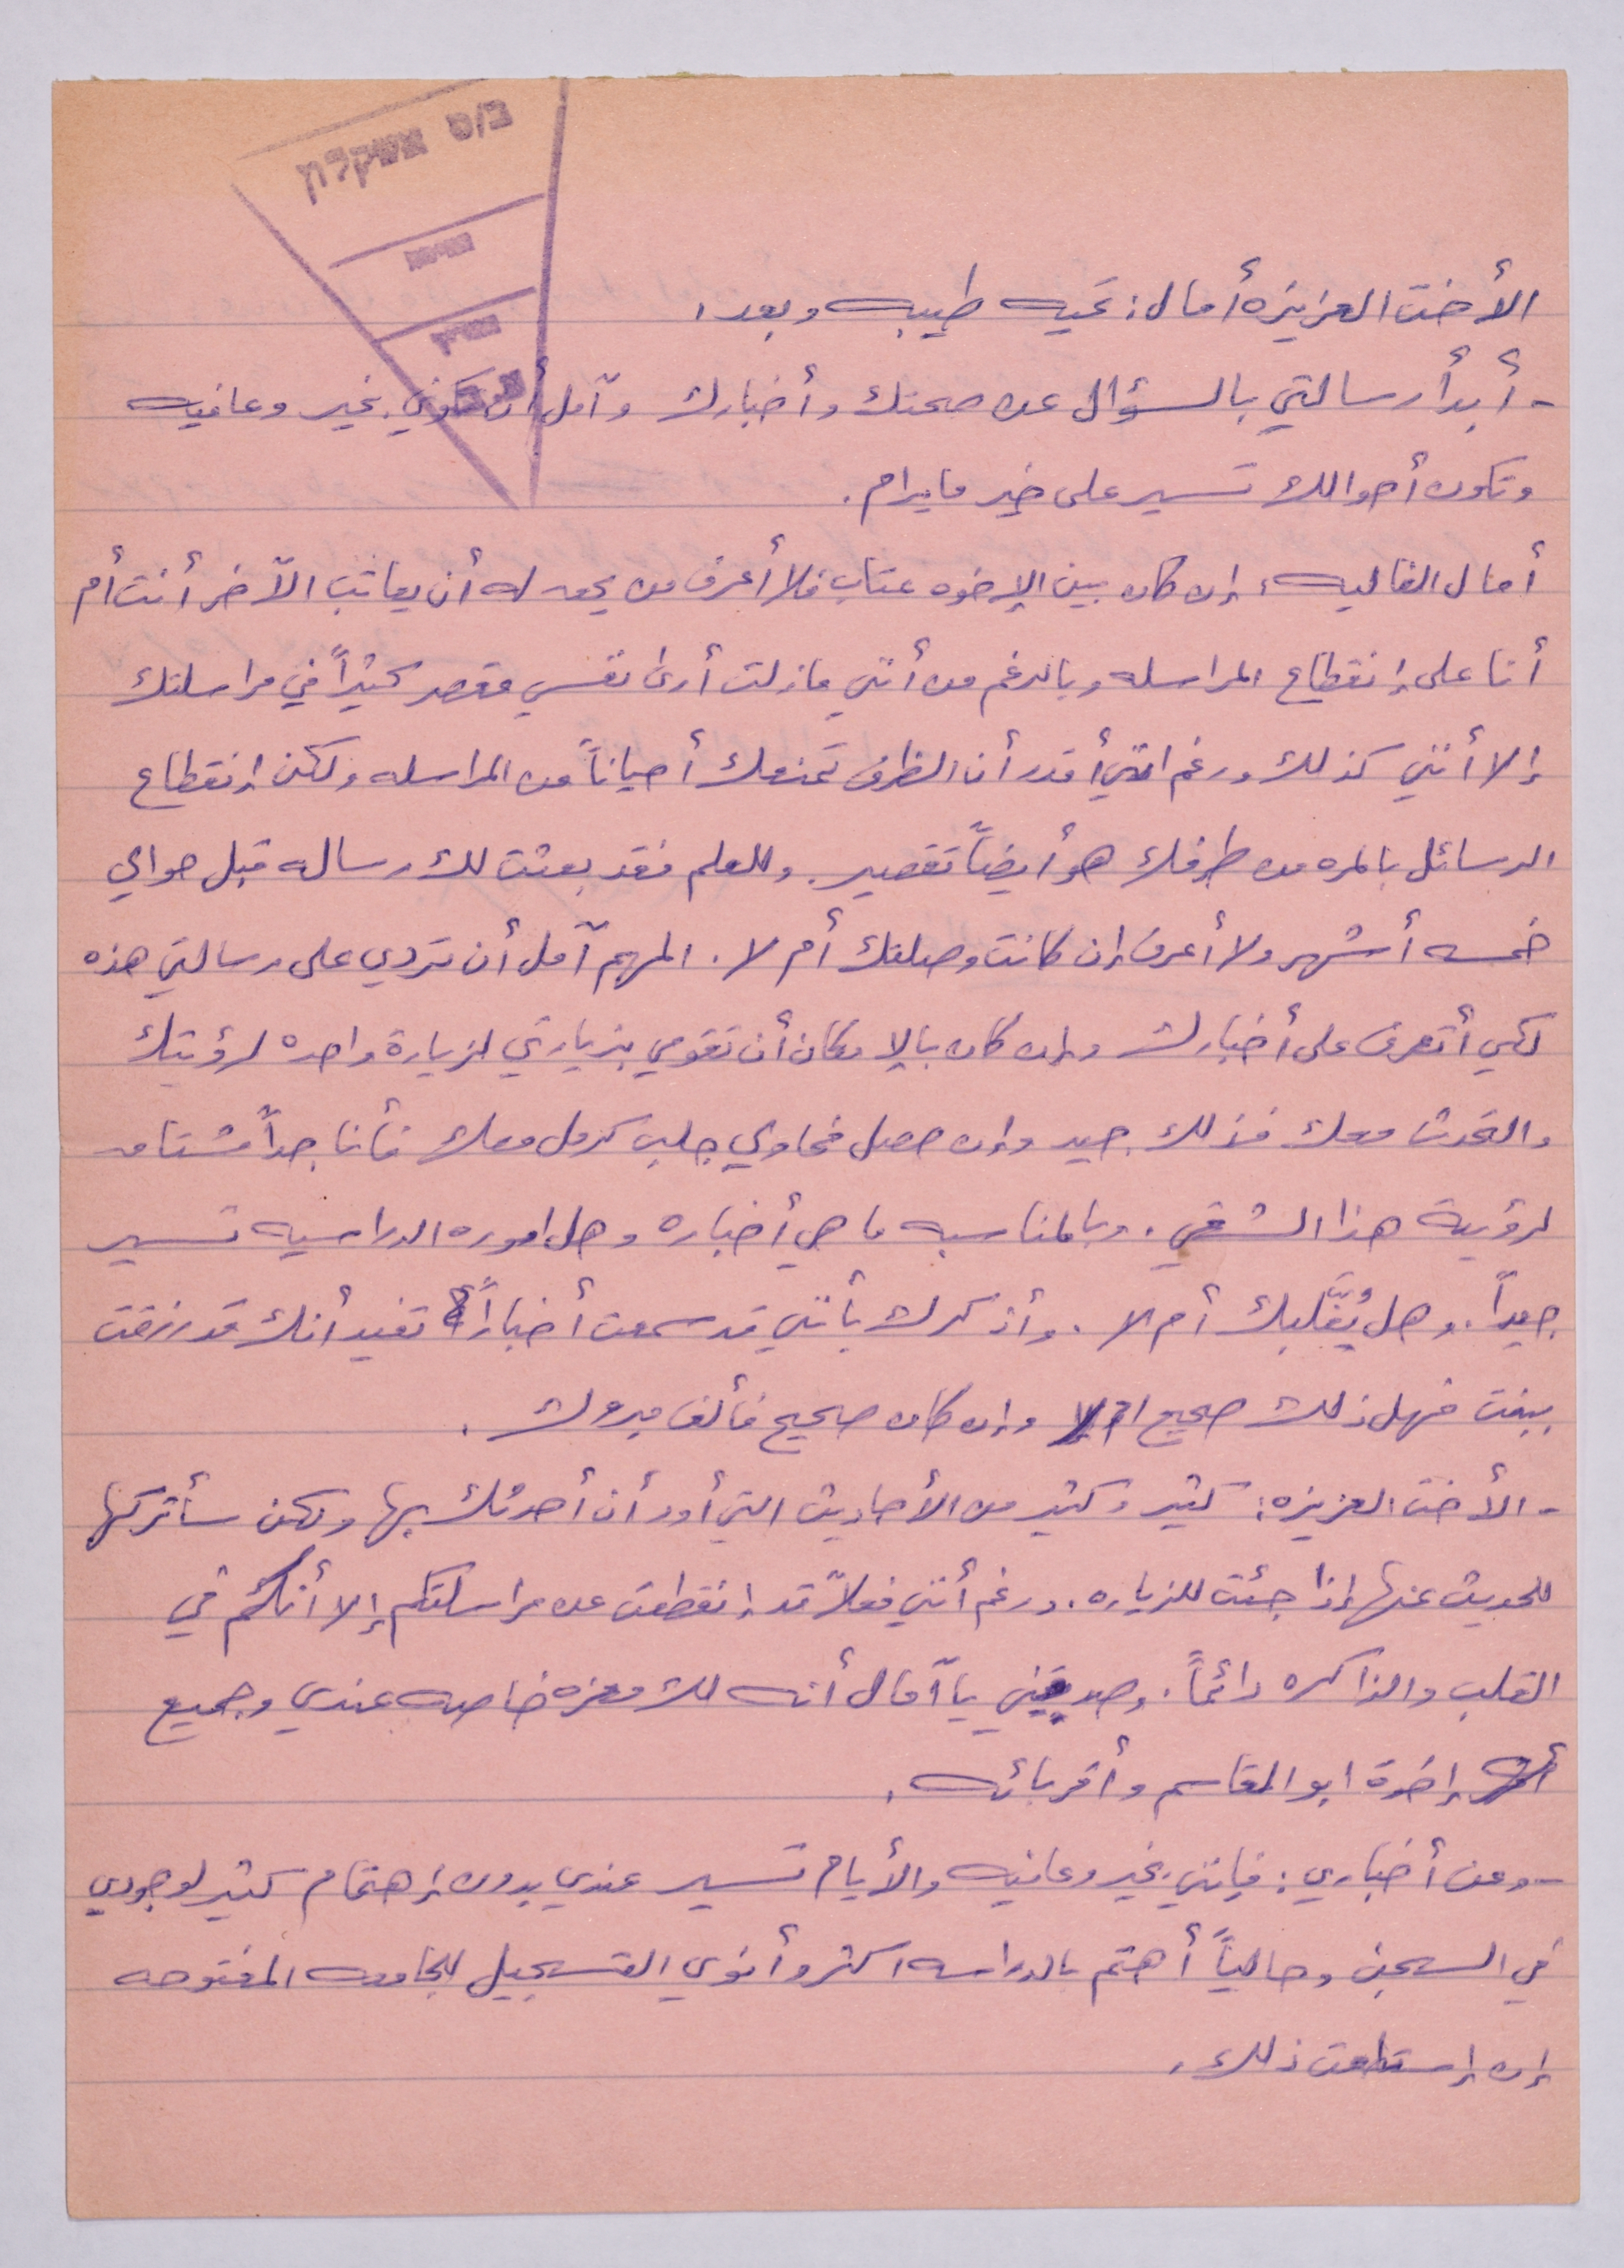 ב/ס אשקלון
الأخت العزيزه أمال: تحيه طيبه وبعد،
- أبدأ رسالتي بالسؤال عن صحتك وأخبارك وآمل أن تكوني بخير وعافيه
وتكون أحوالك تسير على خير ما يرام.
أمال الغاليه، إن كان بين الإخوه عتاب فلا أعرف من يحق له أن يعاتب الآخر أنت أم
أنا على إنقطاع المراسله وبالرغم من أنني مازلت أرى نفسي مقصر كثيراً في مراسلتك
إلا أنني كذلك ورغم انني أقدر أن الظرف تمنعك أحياناً من المراسله ولكن إنقطاع
الرسائل بالمره من طرفك هو أيضاً تقصير. وللعلم فقد بعثت لك رساله قبل حوالي
خمسه أشهر ولا أعرف إن كانت وصلتك أم لا. المهم آمل أن تردي على رسالتي هذه
لكي أتعرف على أخبارك وإن كان بالإمكان أن تقومي بزيارتي لزيارة واحده لرؤيتك
والتحدث معك فذلك جيد وإن حصل فحاولي جلب كرمل معك فأنا جداً مشتاق
لرؤية هذا الشقي. وبالمناسبه ما هي أخباره وهل اموره الدراسيه تسير
جيداً. وهل يُغَلبك أم لا. وأذكرك بأنني قد سمعت أخباراً تفيد أنك قد رزقت
ببنت فهل ذلك صحيح ام لا وإن كان صحيح فألف مبروك.
- الأخت العزيزه: كثير وكثير من الأحاديث التي أود أن أحدثك بها ولكن سأتركها
للحديث عنها إذا جئت للزياره. ورغم أنني فعلاً قد إنقطعت عن مراسلتكم إلا أنكم في
القلب والذاكره دائماً. وصدقيني يا آمال أنه لك معزه خاصه عندي وجميع
إخوة ابو القاسم وأقربائه.
- وعن أخباري: فإنني بخير وعافيه والأيام تسير عندي بدون إهتمام كثير لوجودي
في السجن وحالياً أهتم بالدراسه اكثر وأنوي التسجيل للجامعه المفتوحه
إن إستطعت ذلك.